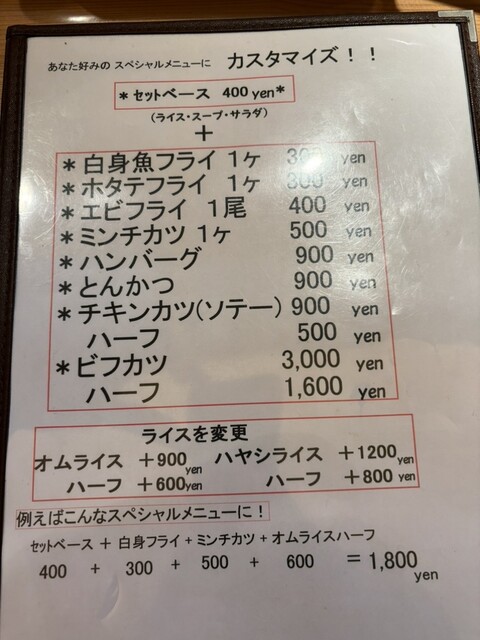 あなた好みの スペシャルメニューに カスタマイズ！！
＊セットベース 400 yen＊
（ライス・スープ・サラダ）
＋
＊白身魚フライ 1ヶ 300 yen
＊ホタテフライ 1ヶ 300 yen
＊エビフライ 1尾 400 yen
＊ミンチカツ 1ヶ 500 yen
＊ハンバーグ 900 yen
＊とんかつ 900 yen
＊チキンカツ(ソテー) 900 yen
ハーフ 500 yen
＊ビフカツ 3,000 yen
ハーフ 1,600 yen
ライスを変更
オムライス ＋900yen ハヤシライス ＋1200yen
ハーフ ＋600yen ハーフ ＋800 yen
例えばこんなスペシャルメニューに！
セットベース ＋ 白身フライ + ミンチカツ + オムライスハーフ
400 + 300 + 500 + 600 ＝ 1,800 yen